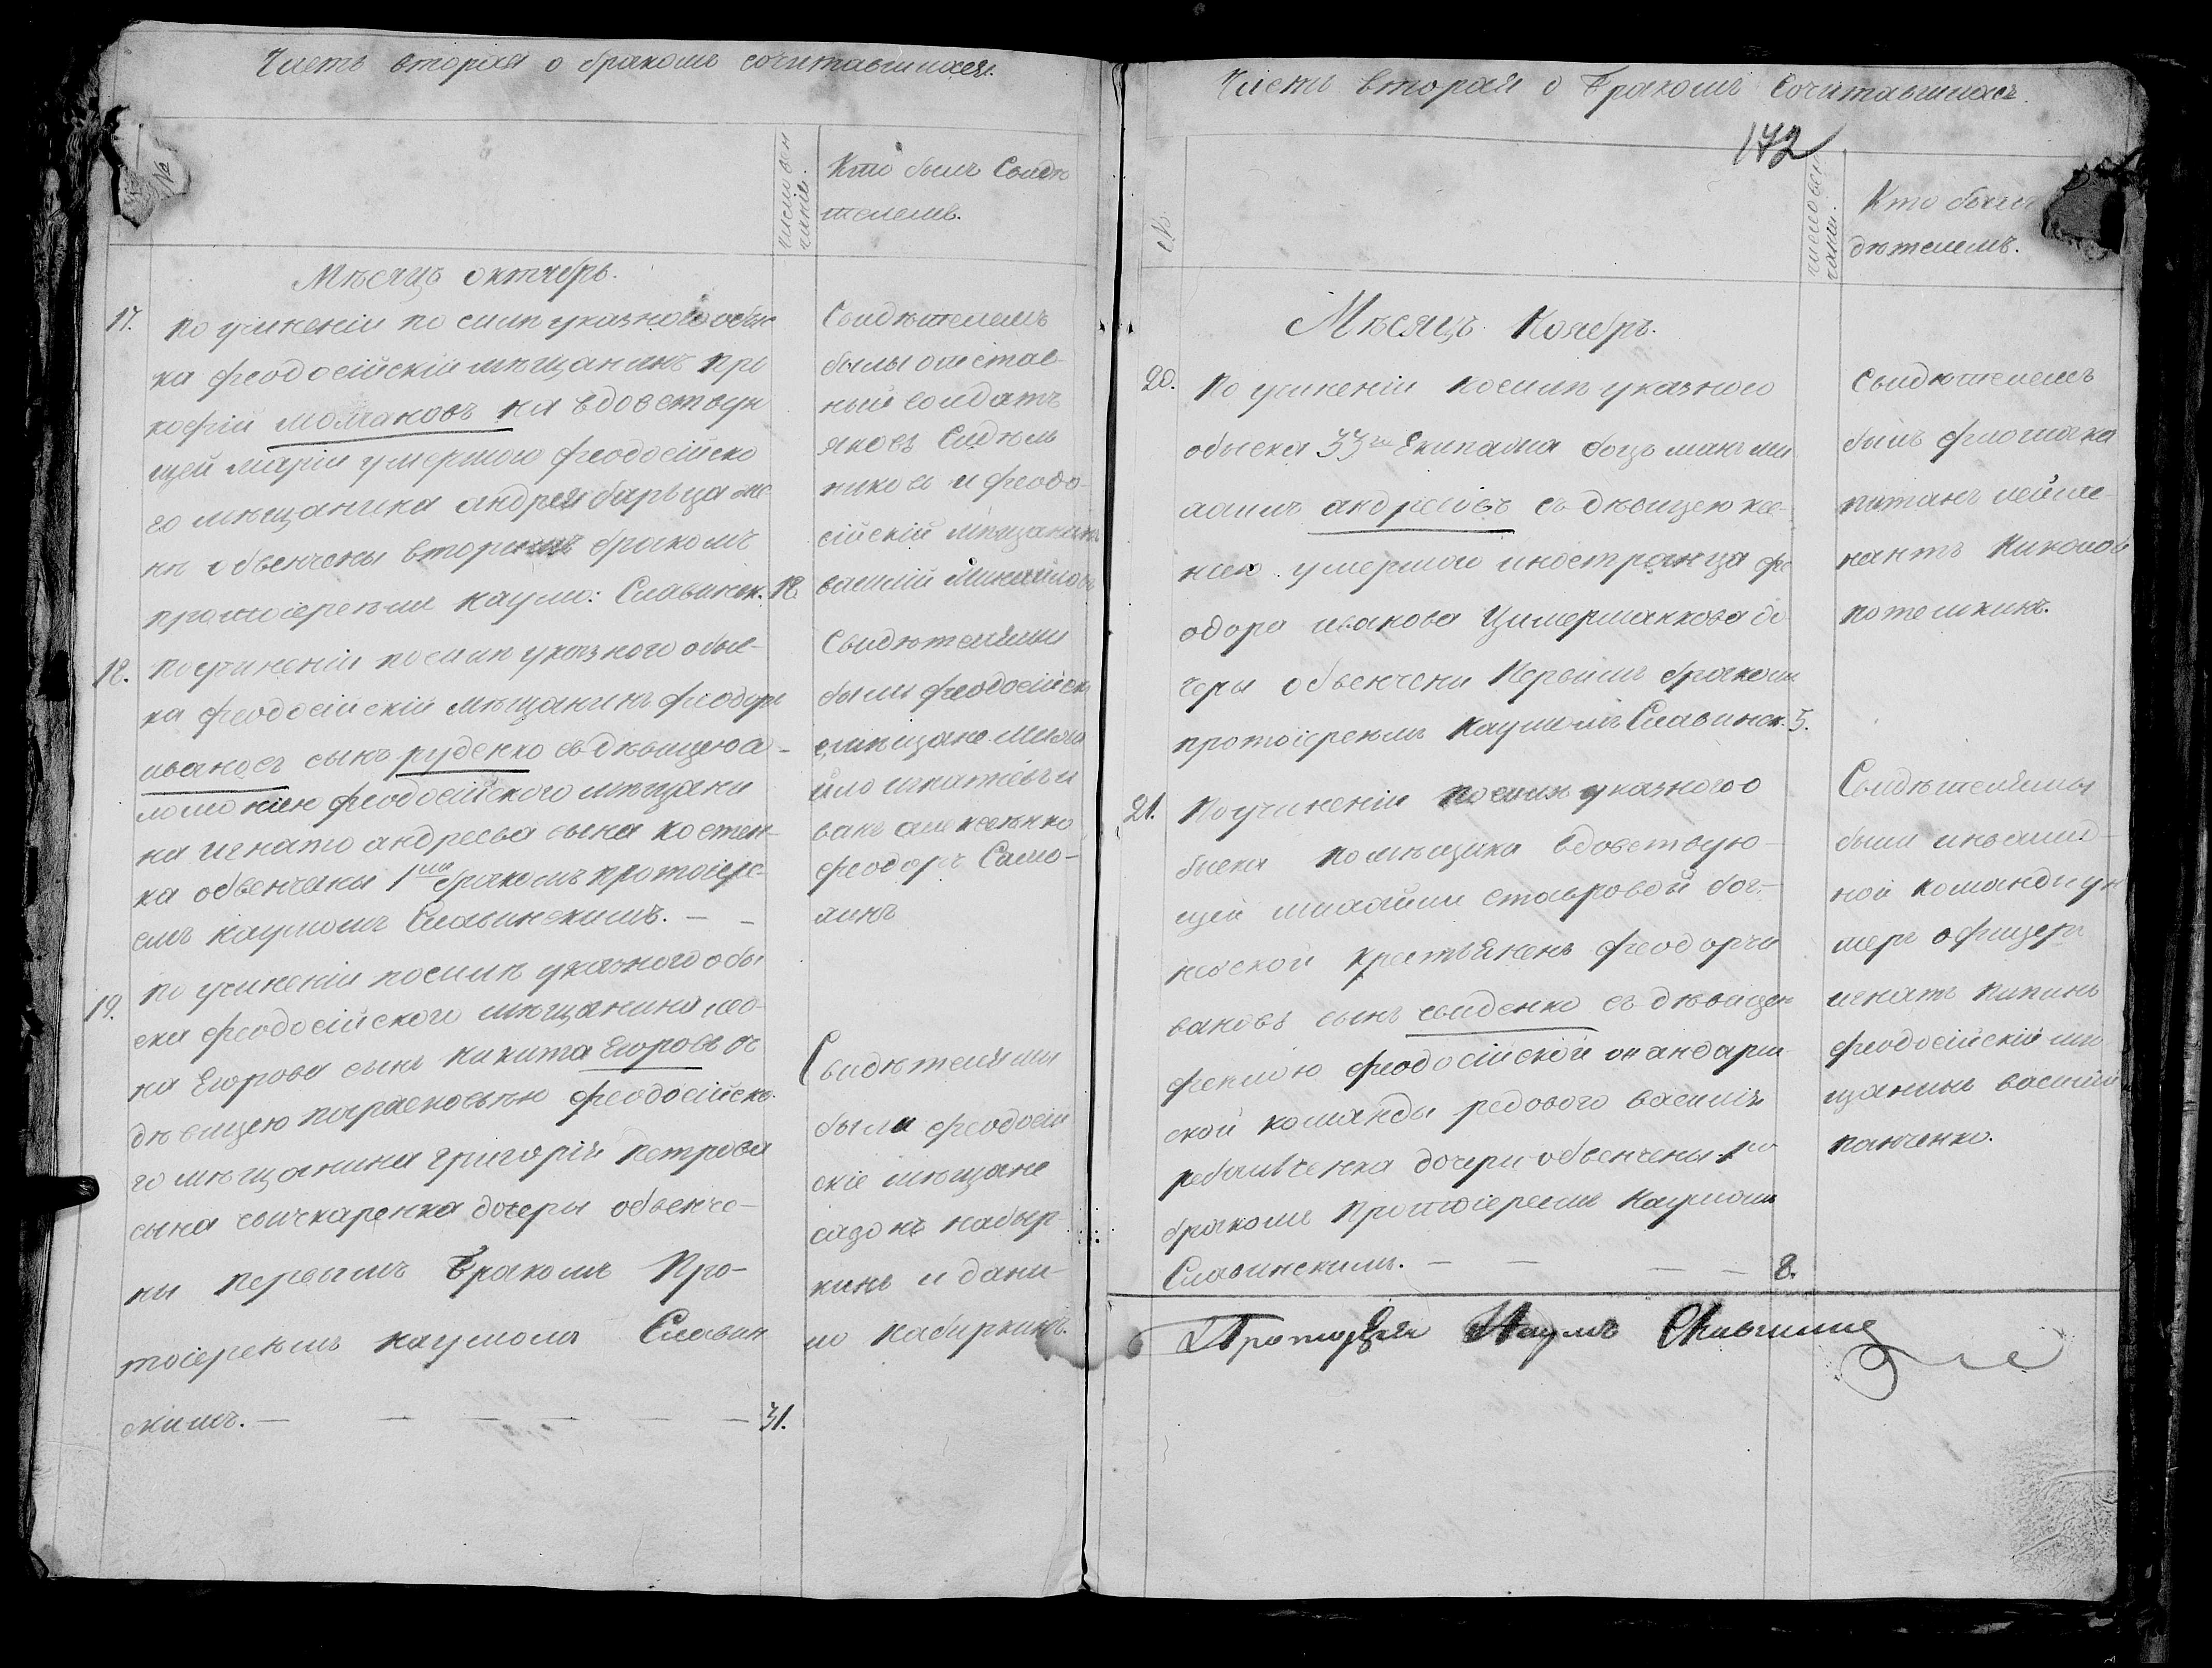 Часть вторая о бракомъ сочитавшихся.
№
число вен
чанiе.
Кто былъ Свидѣ
телемъ.
Мѣсяцъ октябрь.
17. по учиненiи по силѣ указного обыс
ка феодосiйскiй мѣщанинъ про
кофiй на вдовствую
щей марiи умершого феодосiйско
го мѣщанина андрея же
нѣ обвенчены вторымъ бракомъ
протоiереемъ наумо: Славинск. 18.
Свидѣтелемъ
былы отстав-
ный солдатъ
яковъ
и феодо-
сiйскiй мѣщанинъ
василiй Михайловъ
18. по учиненiи по силѣ указного обыс-
ка феодосiйскiй мѣщанинъ феодоръ
ивановъ сынъ руденко съ дѣвицею со-
ломонiею феодосiйского мѣщани
на игната андреева сына костен-
ка обвенчаны 1мъ бракомъ протоiере-
емъ наумомъ Славинскимъ. — —
Свидѣтелями
были феодосiйск
мѣщане Миха
йло игнатьевъ и
ванъ алексѣенко
феодоръ Само-
19. по учиненiи по силѣ указного обы
ска феодосiйского мѣщанина
на Егорова сынъ никита Егоровъ съ
дѣвицею параскевѣю феодосiйско-
го мѣщанина григорiя петрова
сына дочеры обвенча-
ны первымъ Бракомъ Про-
тоiереемъ наумомъ Славин
скимъ. — — — — — — 31.
Свидѣтелямы
были феодосiй
скiе мѣщане
сазонъ набыр-
кинъ и дани-
ло набиркинъ.
Часть вторая о Бракомъ Сочитавшихсь.
172
№.
число вен
чанiя.
Кто былъ
дѣтелемъ.
Мѣсяцъ Ноябръ.
20. по учиненiи по силѣ указного
обыска 33го Екипажа боцъманъ ми
хаилъ андреевъ съ дѣвицею
умершого иностранца фе
одора иванова Цимерманкова до
черы обвенчены Первымъ бракомъ
протоiереемъ Наумомъ Славинск. 5.
Свидѣтелемъ
былъ флота ка
питанъ лейте-
нантъ Николай
потемкинъ.
21. По учиненiи по силѣ указного о
быска помѣщика вдовствую-
щей ставровой
крестьянень феодоръ и
вановъ сынъ свиденко съ дѣвицею
феклою феодосiйской жандарм
ской команды редового василiя
дочери обвенчены 1мъ
бракомъ Протоiереемъ Наумомъ
Славинскимъ. — — — — 8.
Свидѣтелямы
были инвалид-
ной команды ун
теръ офицеръ
игнатъ пипинъ
феодосiйскiй мѣ
щанинъ василiй
панченко.
Протоiерей Наумъ Славински